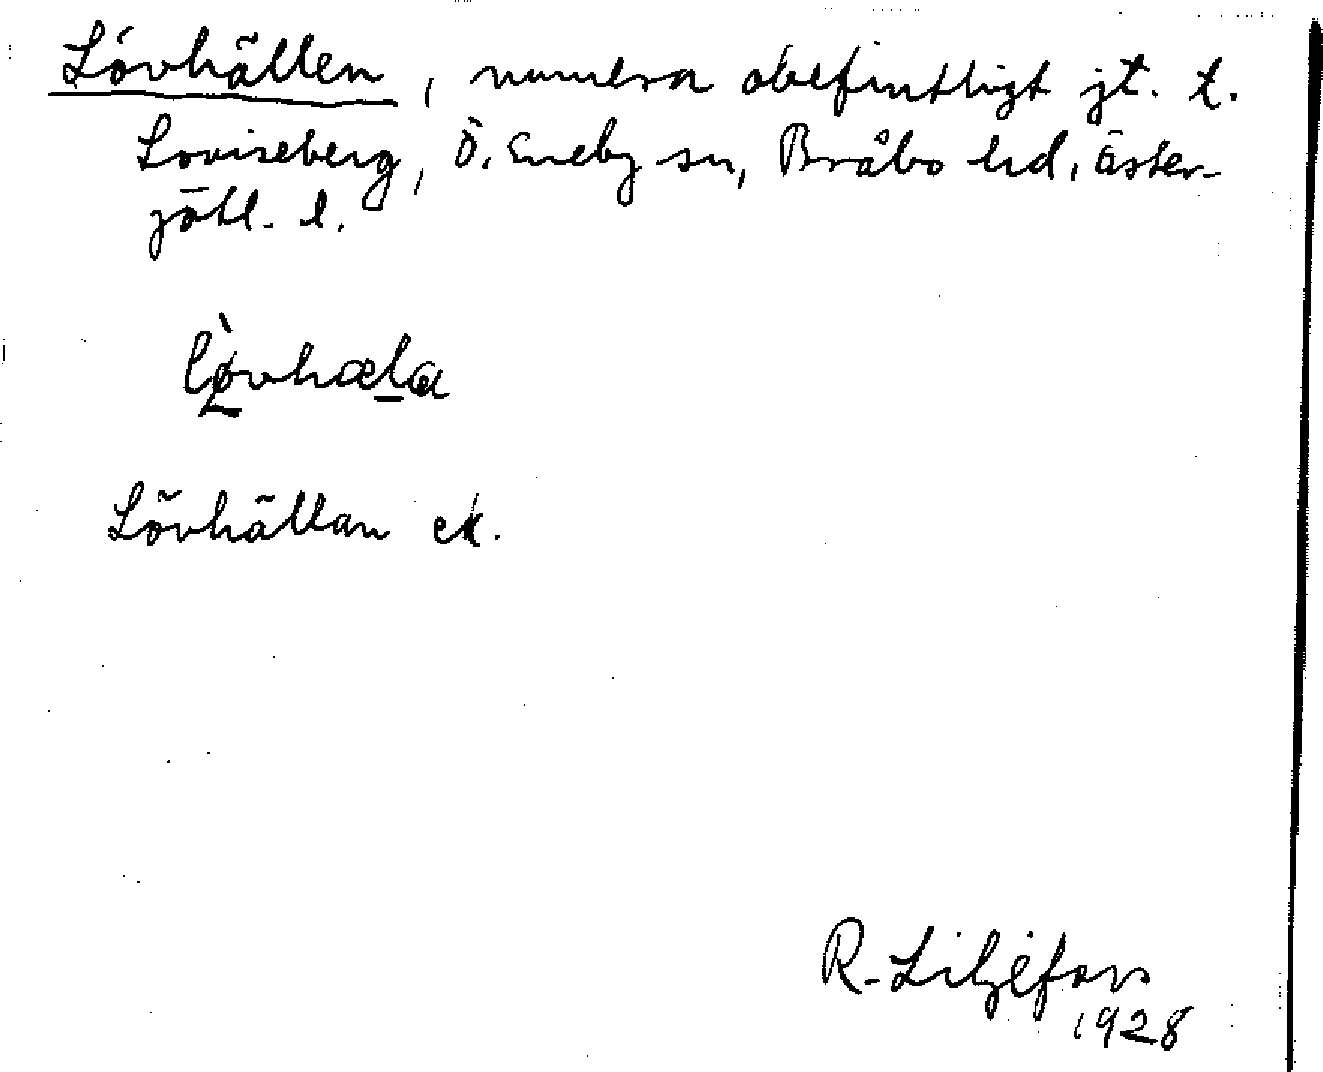 Lövhällen, numera obefintligt jt. t.
Loviseberg, Ö. Eneby sn, Bråbo hd, Öster-
götl. l.
lø̀vhæla
Lövhällan ek.
R. Liljefors
1928